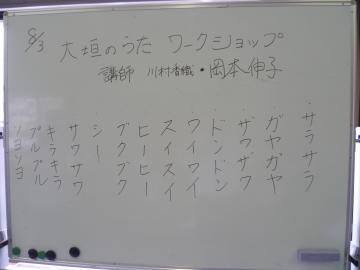 8/3
大垣のうた ワークショップ
講師 川村香織・岡本伸子
サラサラ
ガヤガヤ
ザワザワ
ドンドン
ワイワイ
スイスイ
ヒーヒー
ブクブク
シー
サワサワ
キラキラ
プルプル
ソヨソヨ